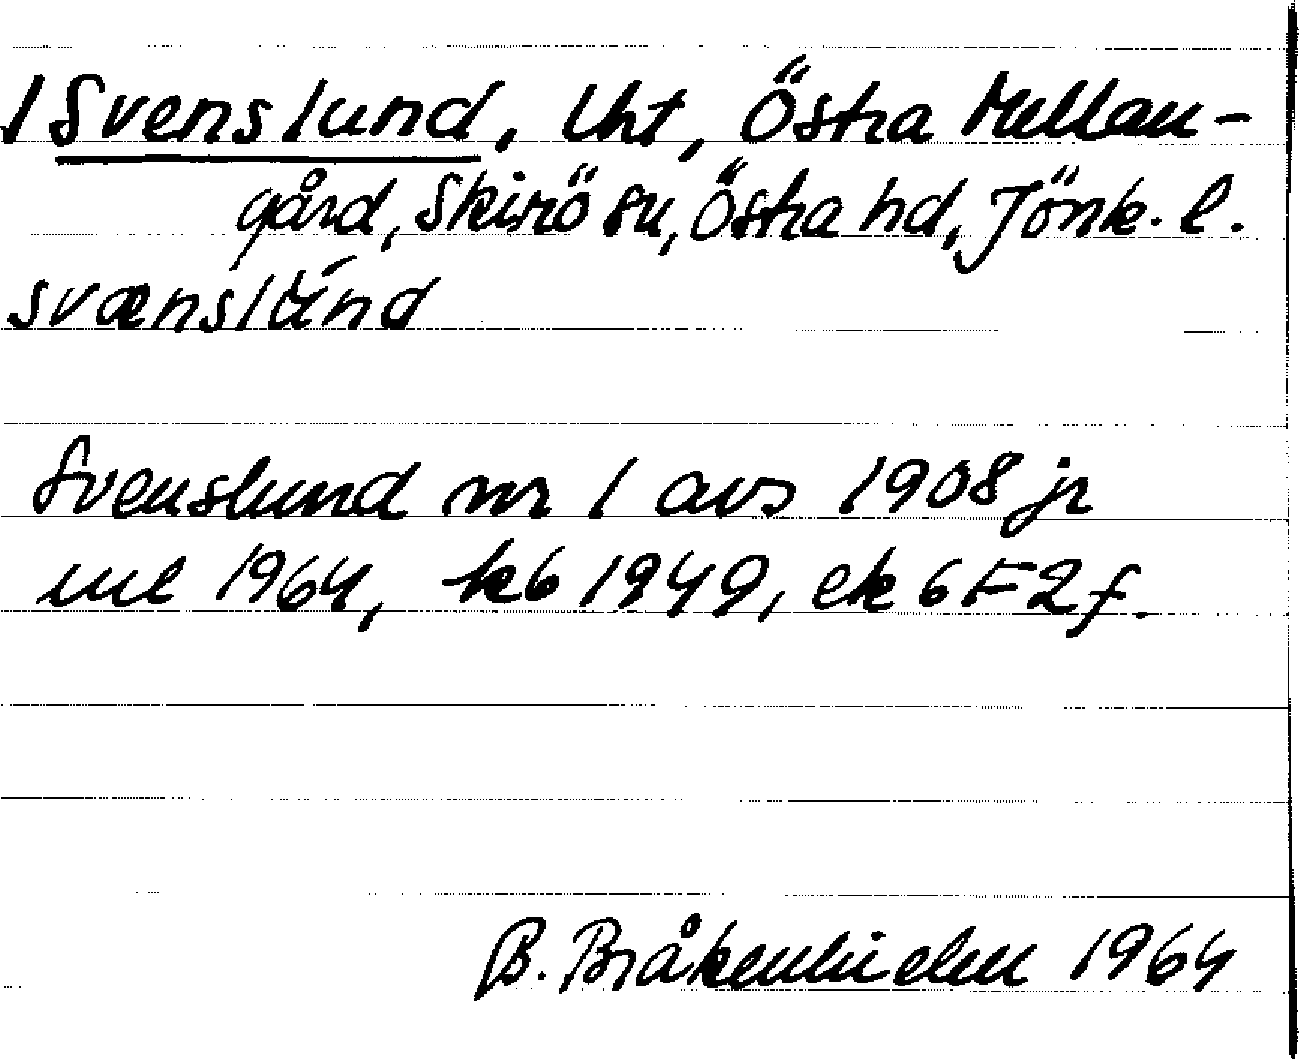 1 Svenslund, lht, Östra Mellan-
gård, Skirö sn, Östra hd, Jönk. l.
svænslúnd
Svenslund nr 1 avs 1908 jr
ml 1964, kb 1949, ek 6F2f.
B. Bråkenhielm 1964